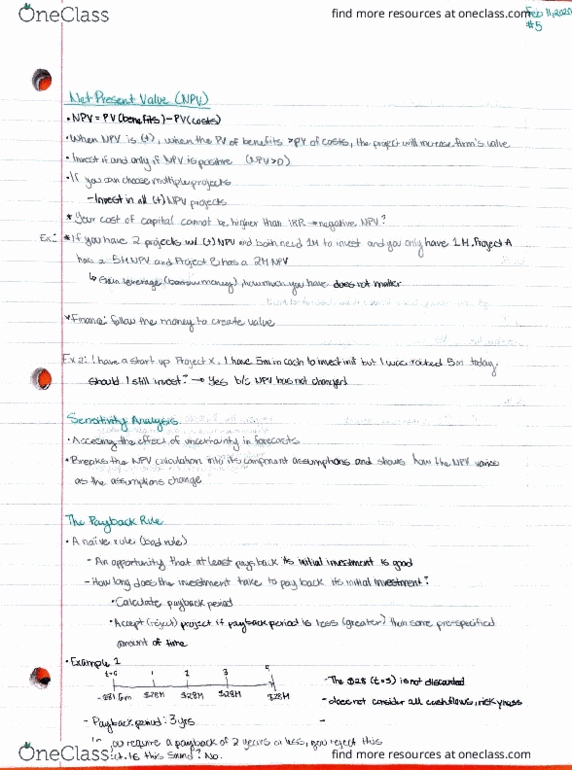 OneClass
find more resources at oneclass.com
Feb 11, 2020
#5
Net Present Value (NPV)
• NPV = PV(benefits) - PV(costs)
• When NPV is (+), when the PV of benefits > PV of costs, the project will increase firm's value
• Invest if and only if NPV is positive (NPV>0)
• If you can choose multiple projects
- Invest in all (+) NPV projects
* Your cost of capital cannot be higher than IRR → negative NPV?
Ex: * If you have 2 projects w/ (+) NPV and both need 1M to invest and you only have 1M. Project A
has a 5M NPV and Project B has a 2M NPV
↳ Gain leverage (borrow money), how much you have does not matter
* Finance: follow the money to create value
Ex 2: I have a start up Project X. I have 5m in cash to invest in it but I was robbed 5m today.
Should I still invest? → Yes b/c NPV has not changed
Sensitivity Analysis
• Accessing the effect of uncertainty in forecasts
• Breaks the NPV calculation into its component assumptions and shows how the NPV varies
as the assumptions change
The Payback Rule
• A naive rule (bad rule)
- An opportunity that at least pays back its initial investment is good
- How long does the investment take to pay back its initial investment?
• Calculate payback period
• Accept (reject) project if payback period is less (greater) than some pre-specified
amount of time
• Example 1
t=0 1 2 3 5
$28M $28M $28M $28M
- The $28 (t=5) is not discounted
- does not consider all cashflows, riskyness
- Payback period: 3 yrs
-
you require a payback of 2 years or less, you reject this
Is this sound? No.
OneClass
find more resources at oneclass.com